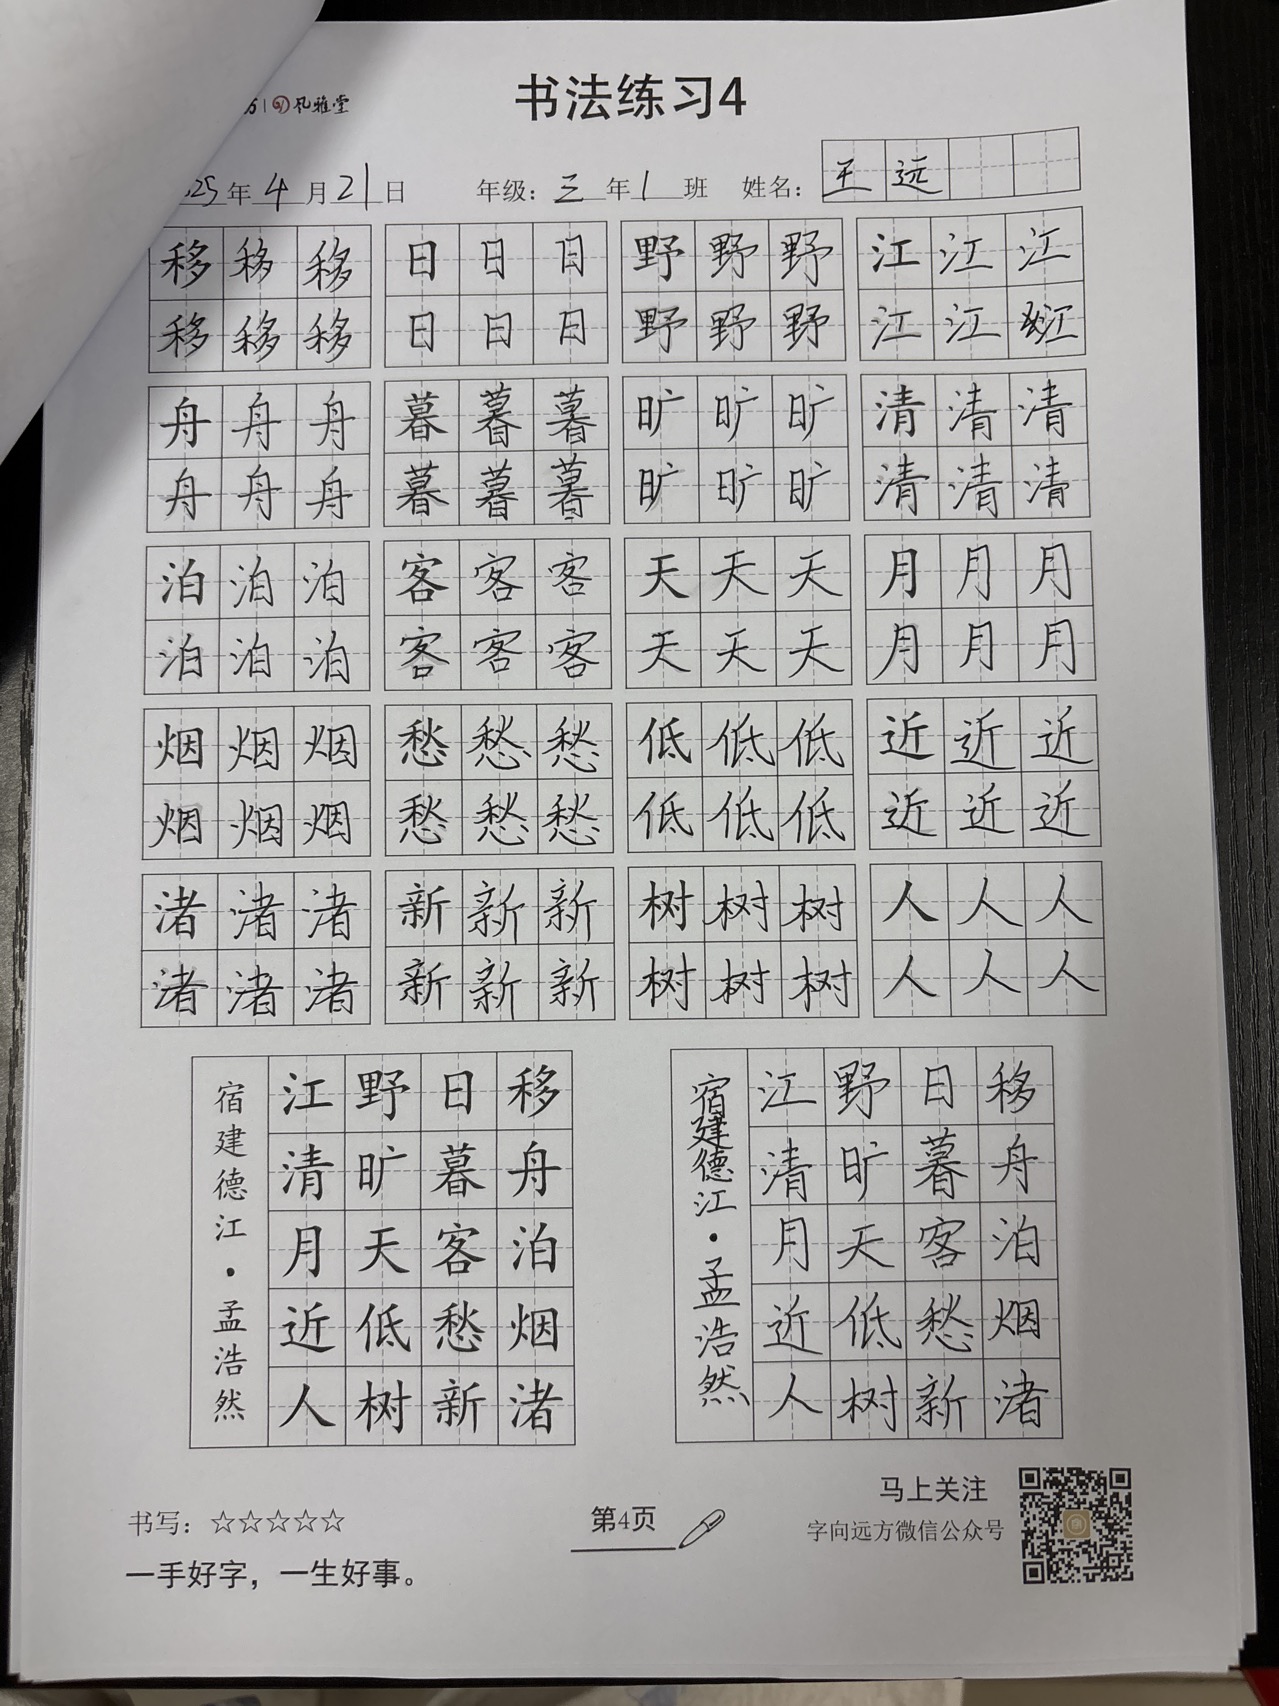 风雅堂
书法练习4
25年4月21日 年级：三年1班 姓名：王远
移移移 日日日 野野野 江江江
移移移 日日日 野野野 江江
舟舟舟 暮暮暮 旷旷旷 清清清
舟舟舟 暮暮暮 旷旷旷 清清清
泊泊泊 客客客 天天天 月月月
泊泊泊 客客客 天天天 月月月
烟烟烟 愁愁愁 低低低 近近近
烟烟烟 愁愁愁 低低低 近近近
渚渚渚 新新新 树树树 人人人
渚渚渚 新新新 树树树 人人人
移舟泊烟渚
日暮客愁新
野旷天低树
江清月近人
宿建德江·孟浩然
移舟泊烟渚
日暮客愁新
野旷天低树
江清月近人
宿建德江·孟浩然
书写：☆☆☆☆☆
一手好字，一生好事。
第4页
马上关注
字向远方微信公众号